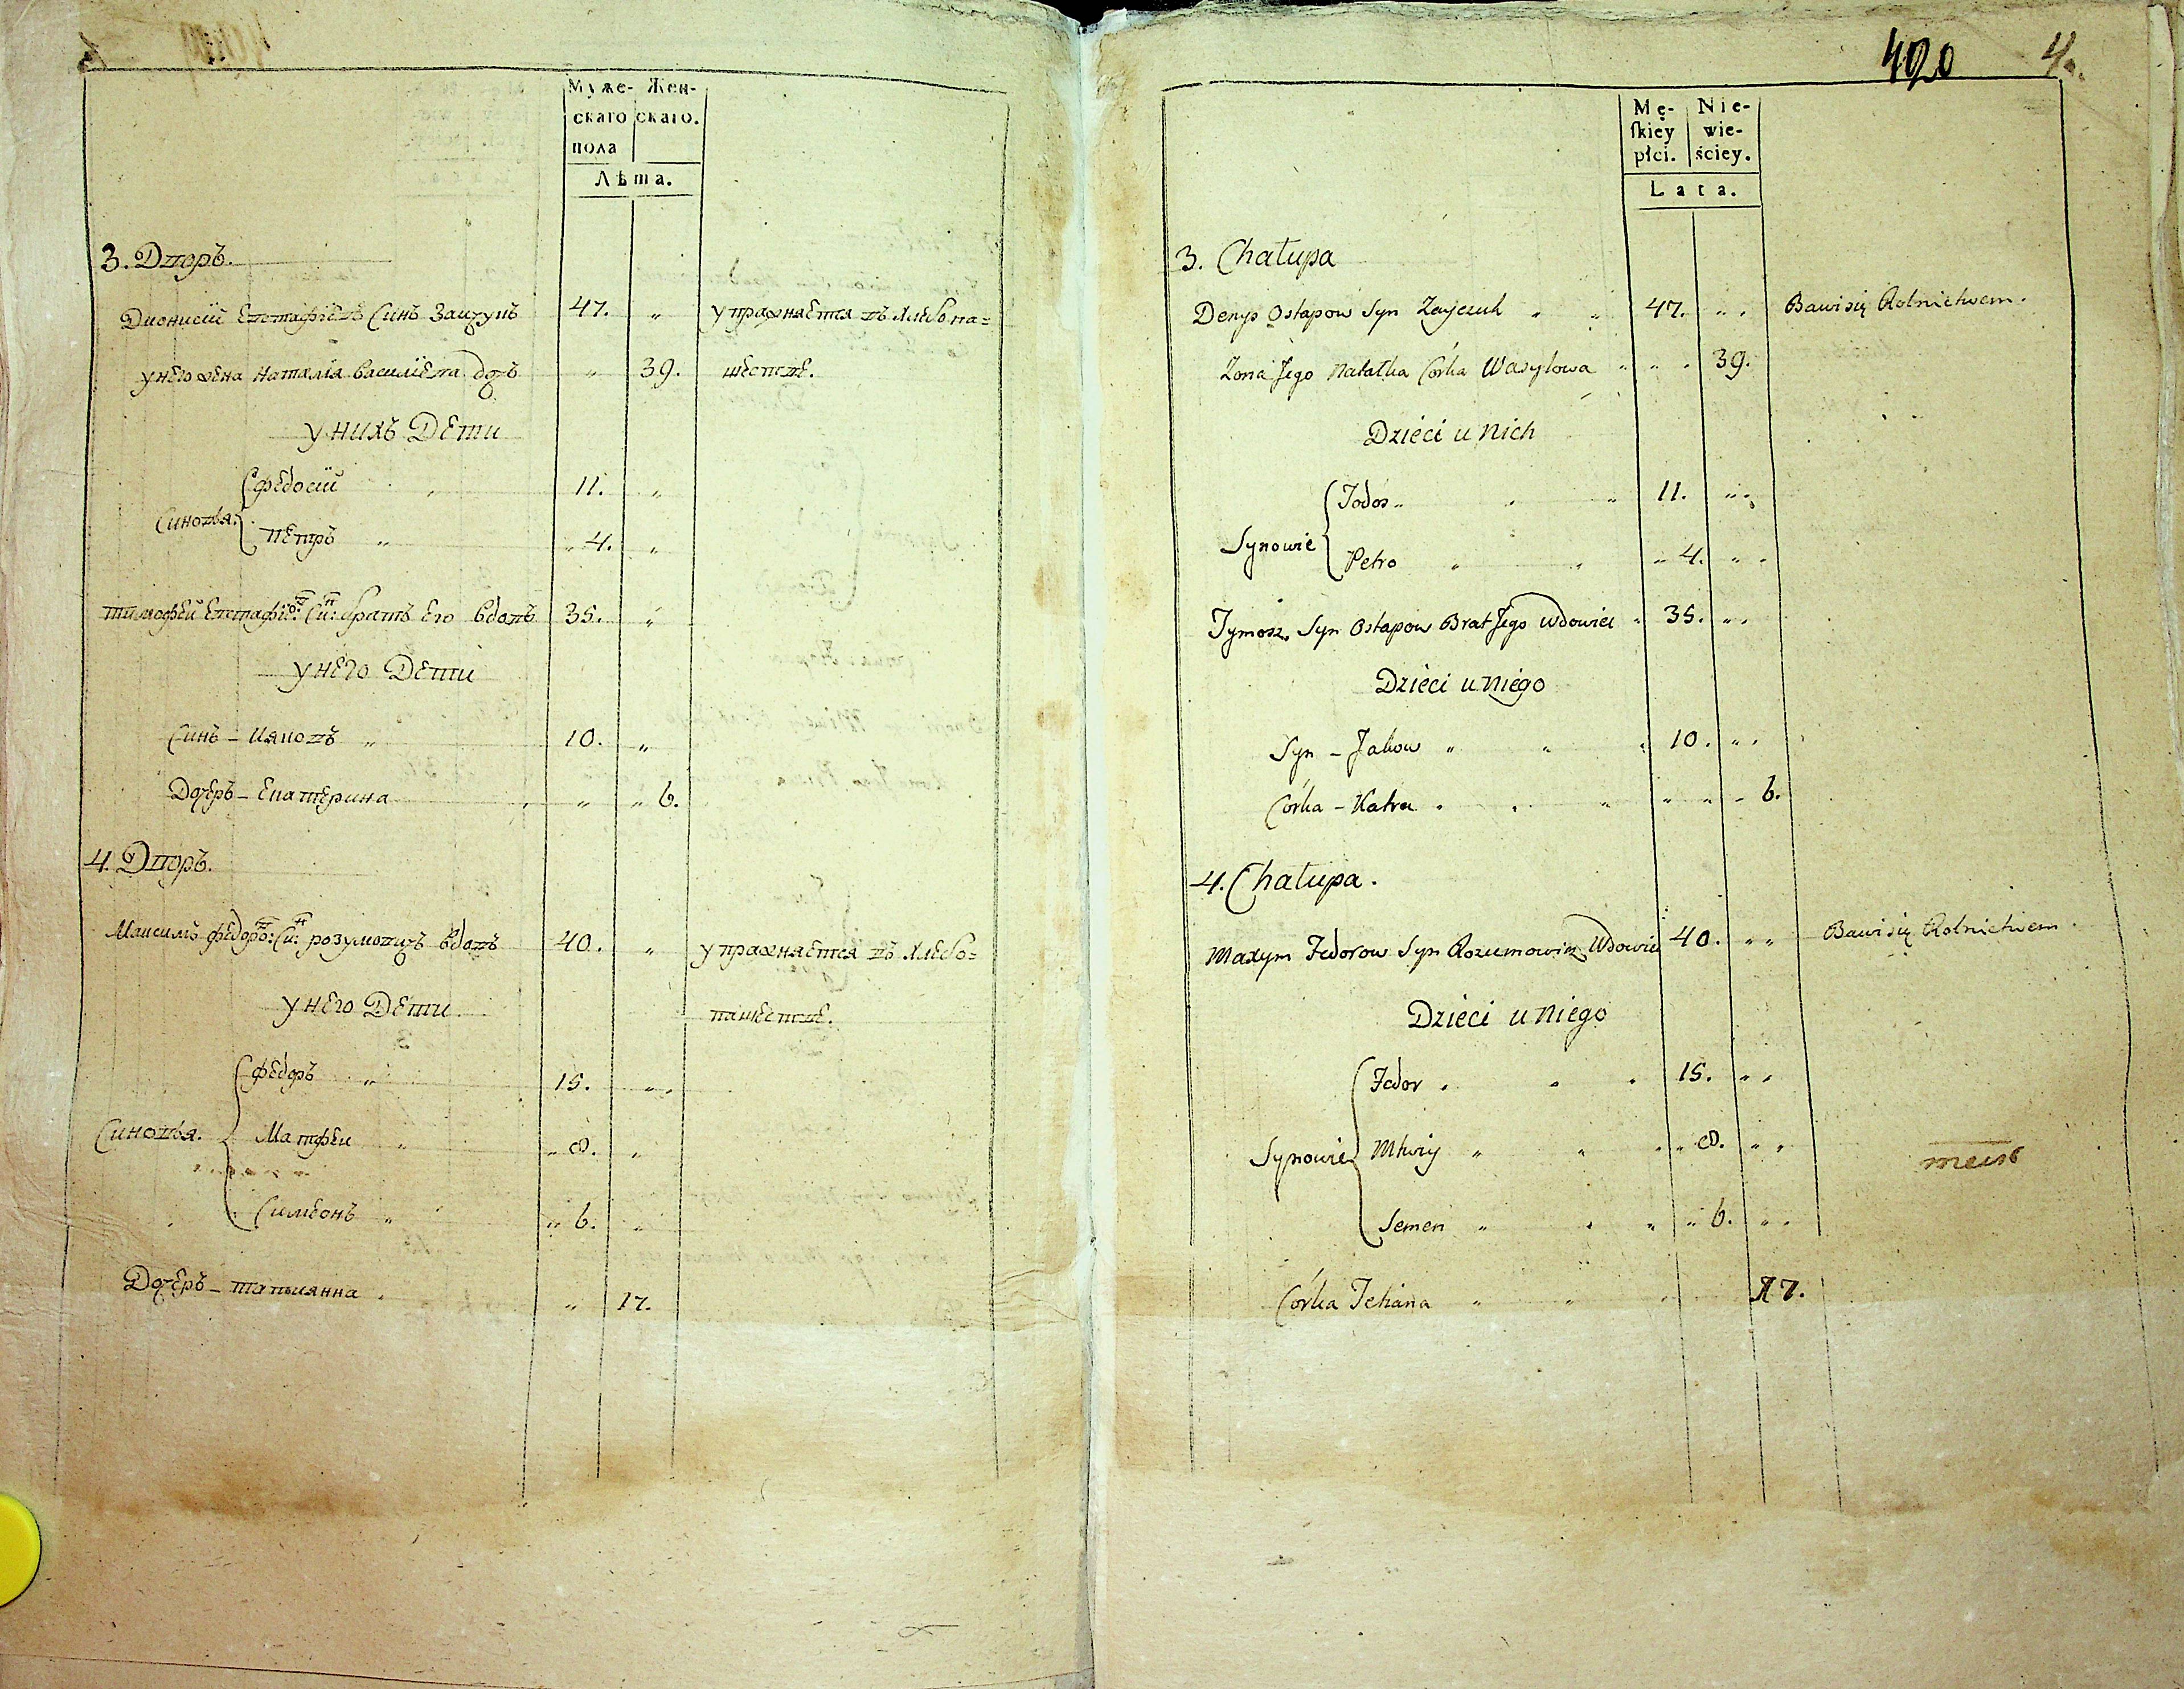 Муже- Жен-
скаго скаго.
пола
Лѣта.
3. Дворъ.
Дионисій Евстафіевъ Синъ Зайчукъ 47. „ упражняется въ хлебопа=
у него жена Наталія Василіева дочъ „ 39. шестве.
У нихъ Дети
Синовья. { Федосій „ 11. „
Петръ „ „ 4. „
Тимофей Евстафіевъ: Синъ: братъ его вдовъ 35. „
У него Дети
Синъ – Иаковъ „ 10. „
Дочеръ – Екатерина „ „ 6.
4. Дворъ.
Максимъ Федоровъ: Синъ: Розумовичъ вдовъ 40. „ упражняется въ хлебо=
У него Дети пашестве.
Синовья. { Федоръ „ 15. „
Матфеи „ „ 8. „
Симеонъ „ „ 6. „
Дочеръ – Татиянна „ 17.
420 4.
Mę- Nie-
ſkiey wie-
płci. ściey.
Lata.
3. Chałupa
Denys Ostapow Syn Zayczuk „ „ 47. „ „ Bawi się Rolnictwem.
Zona Jego Natałka Córka Wasylowa „ „ „ 39.
Dzieci u Nich
Synowie { Fodos „ „ „ 11. „ „
Petro „ „ „ 4. „ „
Tymosz Syn Ostapow Brat Jego Wdowiec „ 35. „ „
Dzieci u Niego
Syn – Jakow „ „ „ 10. „ „
Córka – Katra „ „ „ „ „ „ 6.
4. Chałupa.
Maxym Fedorow Syn Rozumowicz Wdowiec 40. „ „ Bawi się Rolnictwem
Dzieci u Niego
Synowie { Fedor „ „ „ 15. „ „
Mtwiy „ „ „ „ 8. „ „
Semen „ „ „ „ 6. „ „
Córka Tetiana „ „ „ 17.